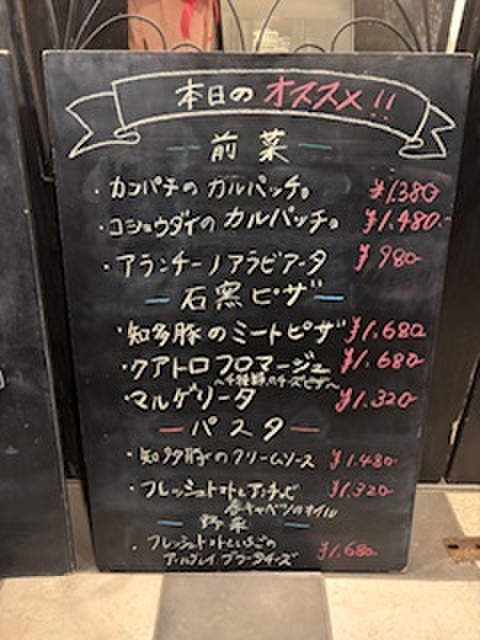 本日の オススメ!!
前菜
・カンパチの カルパッチョ ¥1380
・コショウダイの カルパッチョ ¥1.480-
・アランチーノアラビアータ ¥980-
石窯ピザ
・知多豚のミートピザ ¥1.680
・クアトロフロマージュ ¥1.680-
〜4種類のチーズピザ〜
・マルゲリータ ¥1.320
パスタ
・知多豚のクリームソース ¥1.480-
・フレッシュトマトとアンチョビ ¥1.320
春キャベツのオイル
野菜
・フレッシュトマトといちごの
ブラータチーズ ¥1.680-